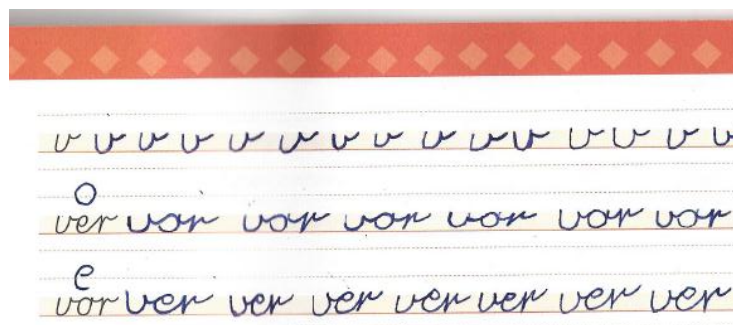 v v v v v v v v v v v v v v v
o
ver vor vor vor vor vor vor
e
vor ver ver ver ver ver ver ver